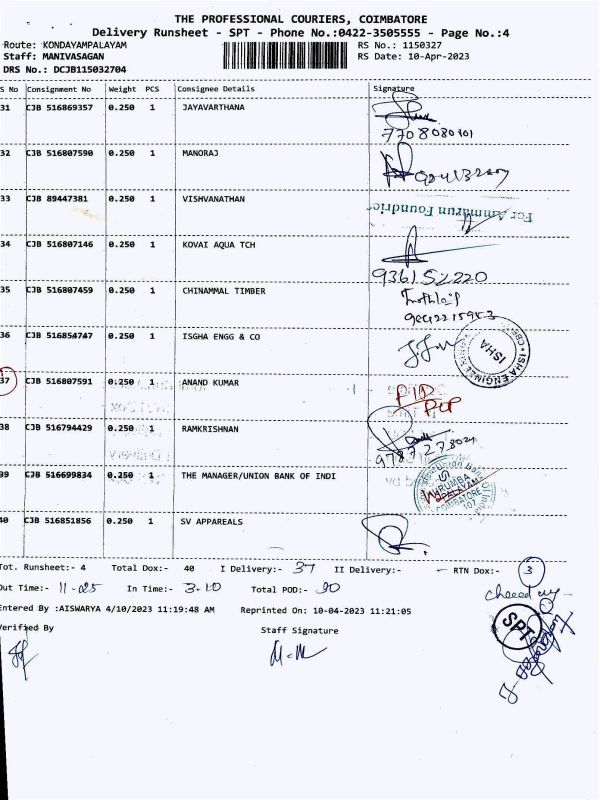 THE PROFESSIONAL COURIERS, COIMBATORE
Delivery Runsheet - SPT - Phone No.:0422-3505555 - Page No.:4
Route: KONDAYAMPALAYAM RS No.: 1150327
Staff: MANIVASAGAN RS Date: 10-Apr-2023
DRS No.: DCJB115032704
S No Consignment No Weight PCS Consignee Details Signature
31 CJB 516869357 0.250 1 JAYAVARTHANA
7708080101
32 CJB 516807590 0.250 1 MANORAJ
33 CJB 89447381 0.250 1 VISHVANATHAN
For Ammarun Foundries
34 CJB 516807146 0.250 1 KOVAI AQUA TCH
9361522220
35 CJB 516807459 0.250 1 CHINAMMAL TIMBER
36 CJB 516854747 0.250 1 ISGHA ENGG & CO
ISHA
37 CJB 516807591 0.250 1 ANAND KUMAR
38 CJB 516794429 0.250 1 RAMKRISHNAN
39 CJB 516699834 0.250 1 THE MANAGER/UNION BANK OF INDI
Union Bank of India
COIMBATORE
40 CJB 516851856 0.250 1 SV APPAREALS
Tot. Runsheet:- 4 Total Dox:- 40 I Delivery:- 37 II Delivery:- - RTN Dox:- 3
Out Time:- 11-05 In Time:- 3-10 Total POD:- 30
Entered By :AISWARYA 4/10/2023 11:19:48 AM Reprinted On: 10-04-2023 11:21:05
Verified By Staff Signature
SPT